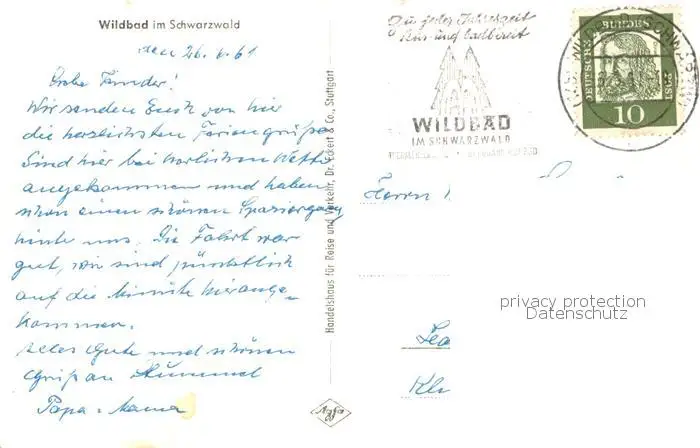 Wildbad im Schwarzwald
den 26.6.61
Liebe Kinder!
Wir senden Euch von hier
die herzlichsten Feriengrüße
Sind hier bei herrlichem Wetter
angekommen und haben
schon einen schönen Spaziergang
hinter uns. Die Fahrt war
gut, wir sind pünktlich
auf die Minute hierange-
kommen.
Alles Gute und schönen
Gruß an
Papa u. Mama
Handelshaus für Reise und Verkehr, Dr. Eckert & Co., Stuttgart
Agfa
Zu jeder Jahreszeit
Kur- und badbereit
WILDBAD
IM SCHWARZWALD
DEUTSCHE BUNDESPOST
10
Herrn
privacy protection
Datenschutz